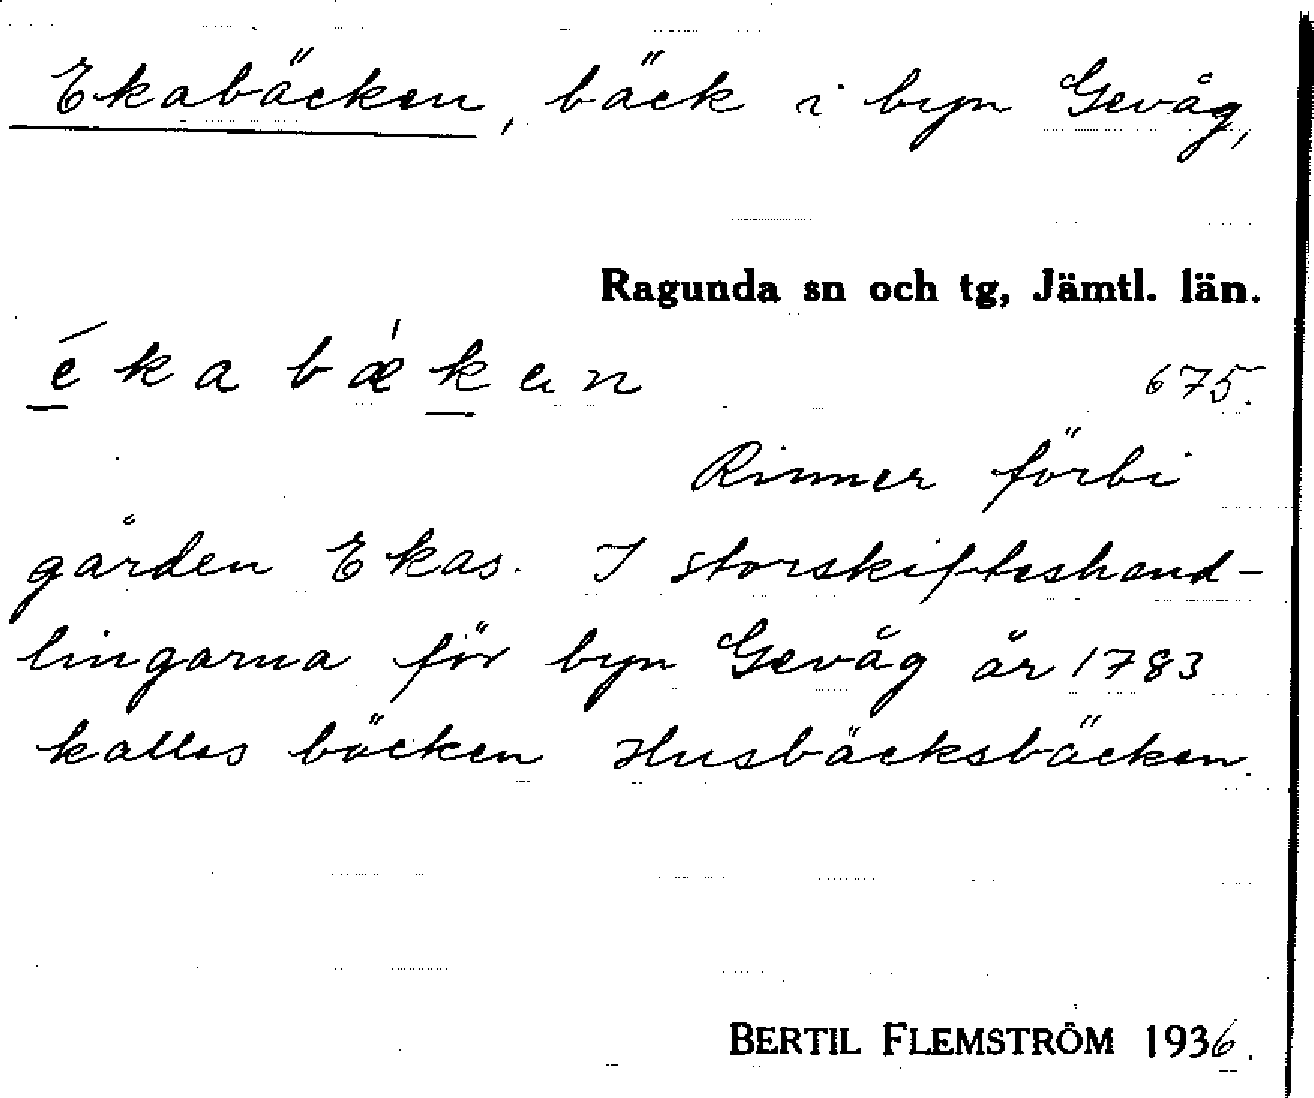 Ekabäcken, bäck i byn Gevåg,
Ragunda sn och tg, Jämtl. län.
ékabæ̍kən 675.
Rinner förbi
gården Ekas. I storskifteshand-
lingarna för byn Gevåg år 1783
kallas bäcken Husbäcksbäcken.
BERTIL FLEMSTRÖM 1936.